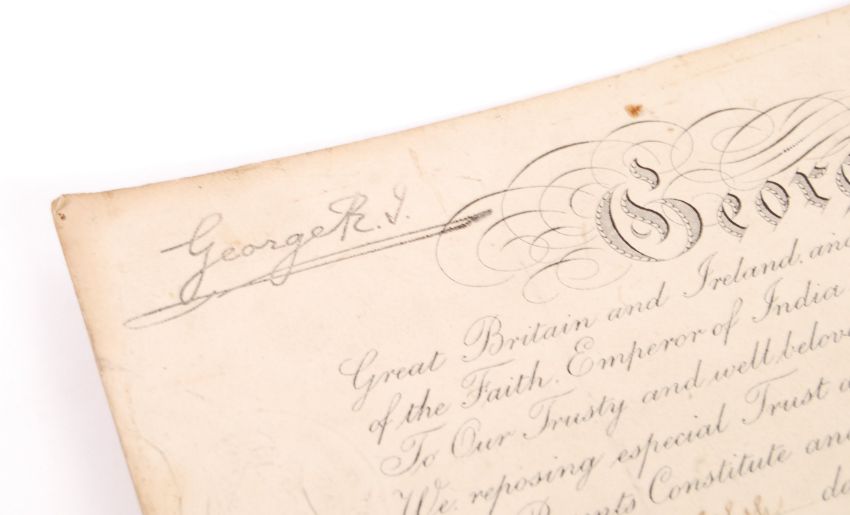 George R. I.
George
Great Britain and Ireland, and
of the Faith. Emperor of India
To Our Trusty and well belov
We. reposing especial Trust a
Constitute and